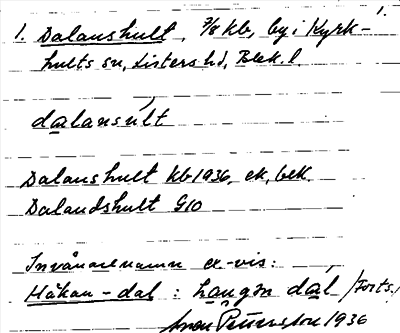 1.
1. Dalanshult, 7/8 kb, by i Kyrk-
hults sn, Listers hd, Blek. l.
dalansult
Dalanshult kb 1936, ek, bek.
Dalandshult G10
Invånarenamn ex-vis:
Håkan-dal : haugən dal /Forts./
Sven Pettersson 1936